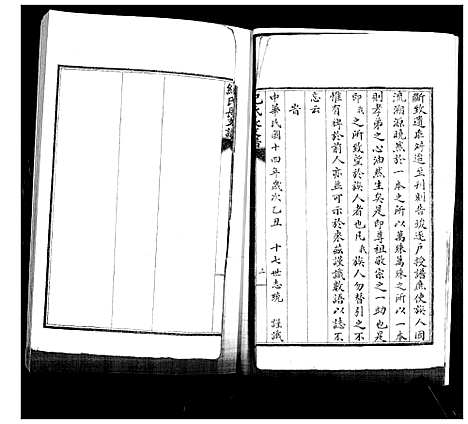 斷致遺來對造並刋則告竣逐戶授譜庶使族人因
流溯源曉然於一本之所以萬殊萬殊之所以一本
則孝弟之心油然生矣是即尊祖敬宗之一助也是
即我之所致望於族人者也凡我族人勿替引之不
惟有裨於前人亦並可示於來茲謹識數語以誌不
忘云
旹
中華民國十四年歲次乙丑 十七世志瑰 謹識
二
氏支譜